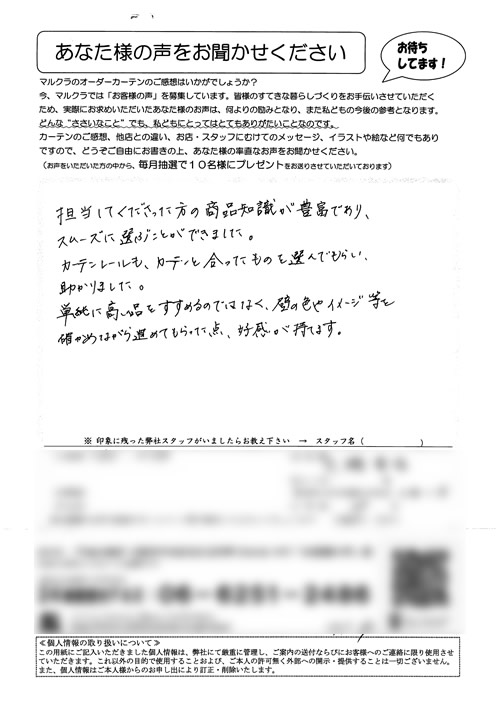 あなた様の声をお聞かせください
お待ち
してます!
マルクラのオーダーカーテンのご感想はいかがでしょうか？
今、マルクラでは「お客様の声」を募集しています。皆様のすてきな暮らしづくりをお手伝いさせていただく
ため、実際にお求めいただいたあなた様のお声は、何よりの励みとなり、また私どもの今後の参考となります。
どんな“ささいなこと”でも、私どもにとってはとてもありがたいことなのです。
カーテンのご感想、他店との違い、お店・スタッフにむけてのメッセージ、イラストや絵など何でもあり
ますので、どうぞご自由にお書きの上、あなた様の率直なお声をお聞かせください。
（お声をいただいた方の中から、毎月抽選で１０名様にプレゼントをお送りさせていただいております）
担当してくださった方の商品知識が豊富であり、
スムーズに選ぶことができました。
カーテンレールも、カーテンと合ったものを選んでもらい、
助かりました。
単純に高い品をすすめるのではなく、壁の色やイメージ等を
確かめながら進めてもらった点、好感が持てます。
※ 印象に残った弊社スタッフがいましたらお教え下さい → スタッフ名（ ）
06-6251-2486
≪個人情報の取り扱いについて≫
この用紙にご記入いただきました個人情報は、弊社にて厳重に管理し、ご案内の送付ならびにお客様へのご連絡に限り使用させ
ていただきます。これ以外の目的で使用することおよび、ご本人の許可無く外部への開示・提供することは一切ございません。
また、個人情報はご本人様からのお申し出により訂正・削除いたします。